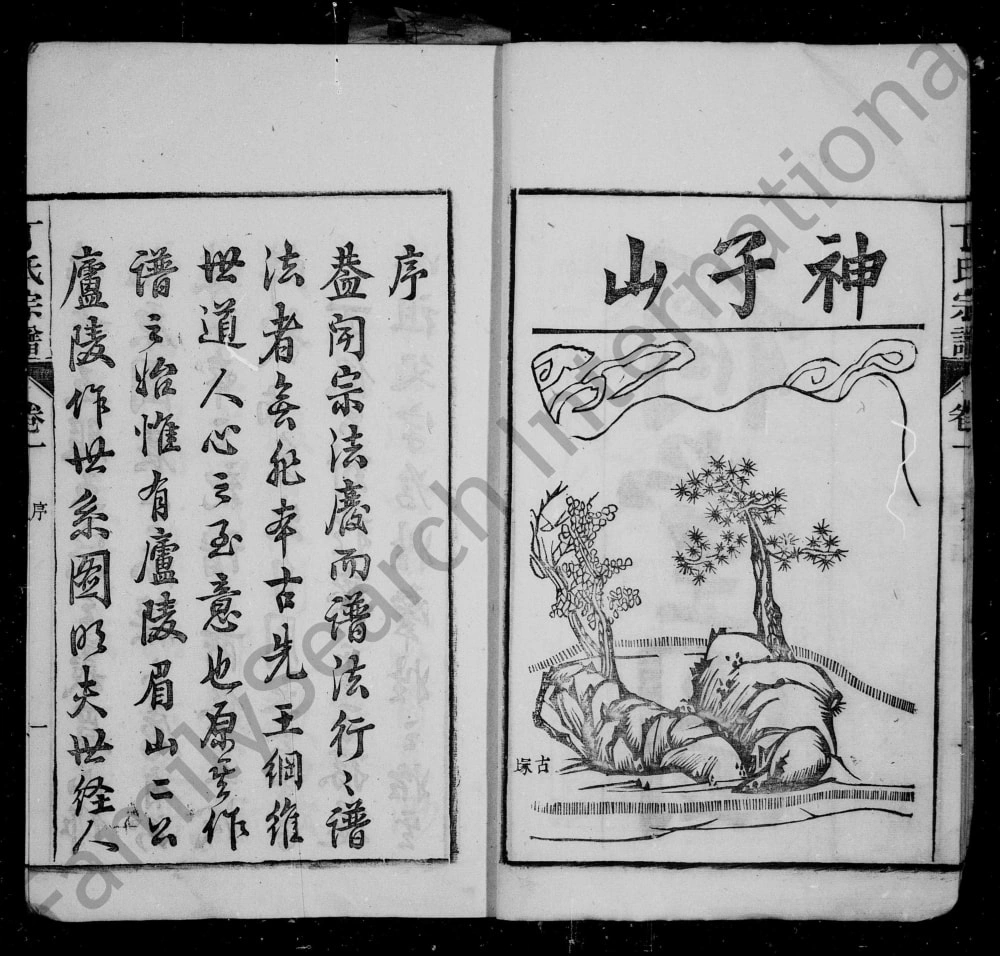 丁氏宗譜
卷一
神子山
古塚
序
葢聞宗法廢而譜法行〻譜
法者無非本古先王綱維
世道人心之至意也原其作
譜之始惟有廬陵眉山二公
廬陵作世系圖明夫世经人
丁氏宗譜
卷一
序
一
FamilySearch International